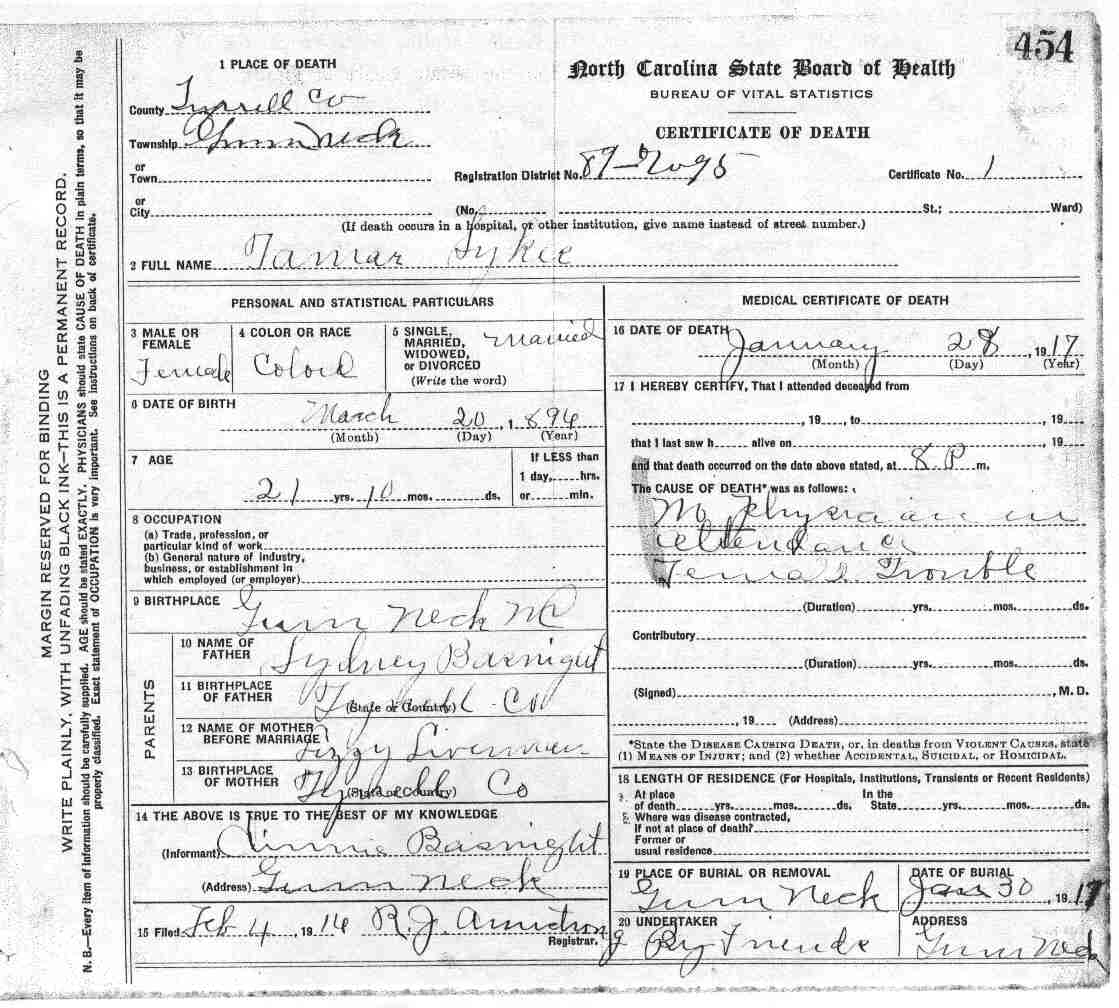 454
North Carolina State Board of Health
BUREAU OF VITAL STATISTICS
CERTIFICATE OF DEATH
1 PLACE OF DEATH
County Tyrrell Co
Township Gum Neck
or
Town
Registration District No. 89-7095 Certificate No. 1
or
City (No. St.; Ward)
(If death occurs in a hospital, or other institution, give name instead of street number.)
2 FULL NAME Tamar Sykee
PERSONAL AND STATISTICAL PARTICULARS
3 MALE OR FEMALE Female
4 COLOR OR RACE Colord
5 SINGLE, MARRIED, WIDOWED, or DIVORCED Married
(Write the word)
6 DATE OF BIRTH
March 20, 1894
(Month) (Day) (Year)
7 AGE
21 yrs. 10 mos. ds.
If LESS than
1 day, hrs.
or min.
8 OCCUPATION
(a) Trade, profession, or
particular kind of work
(b) General nature of industry,
business, or establishment in
which employed (or employer)
9 BIRTHPLACE Gum Neck NC
PARENTS
10 NAME OF FATHER Sydney Basnight
11 BIRTHPLACE OF FATHER Tyrrell Co
(State or Country)
12 NAME OF MOTHER BEFORE MARRIAGE Lizzy Liverman
13 BIRTHPLACE OF MOTHER Tyrrell Co
(State or Country)
14 THE ABOVE IS TRUE TO THE BEST OF MY KNOWLEDGE
(Informant) Basnight
(Address) Gum Neck
15 Filed Feb 4, 19 R. J. Registrar.
MEDICAL CERTIFICATE OF DEATH
16 DATE OF DEATH
January 28, 1917
(Month) (Day) (Year)
17 I HEREBY CERTIFY, That I attended deceased from
, 19 , to , 19
that I last saw h alive on , 19
and that death occurred on the date above stated, at 8 P m.
The CAUSE OF DEATH* was as follows:
No Physician in
attendance
Female Trouble
(Duration) yrs. mos. ds.
Contributory
(Duration) yrs. mos. ds.
(Signed) , M. D.
, 19 (Address)
*State the DISEASE CAUSING DEATH, or, in deaths from VIOLENT CAUSES, state
(1) MEANS OF INJURY; and (2) whether ACCIDENTAL, SUICIDAL, or HOMICIDAL.
18 LENGTH OF RESIDENCE (For Hospitals, Institutions, Transients or Recent Residents)
At place In the
of death yrs. mos. ds. State yrs. mos. ds.
Where was disease contracted,
If not at place of death?
Former or
usual residence
19 PLACE OF BURIAL OR REMOVAL Gum Neck
DATE OF BURIAL Jan 30, 1917
20 UNDERTAKER By Friends
ADDRESS Gum Neck
MARGIN RESERVED FOR BINDING
WRITE PLAINLY, WITH UNFADING BLACK INK—THIS IS A PERMANENT RECORD.
N. B.—Every item of information should be carefully supplied. AGE should be stated EXACTLY. PHYSICIANS should state CAUSE OF DEATH in plain terms, so that it may be
properly classified. Exact statement of OCCUPATION is very important. See instructions on back of certificate.